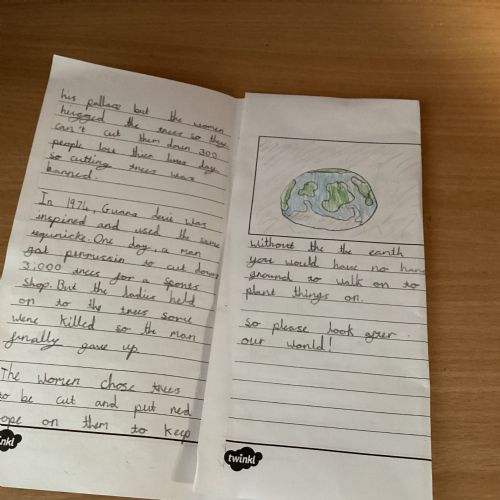 his pallace but the women
hugged the trees so these
can't cut them down 300
people lost thier lives day
so cutting trees was
banned.
In 1974, Guana devi was
inspired and used the same
equnicke. One day, a man
got permission to cut down
3,000 trees for a sports
shop. But the ladies held
on to the trees some
were killed so the man
finally gave up.
The women chose trees
to be cut and put red
ope on them to keep
inkl
without the the earth
you would have no hard
ground to walk on to
plant things on.
So please look after
our world!
twinkl